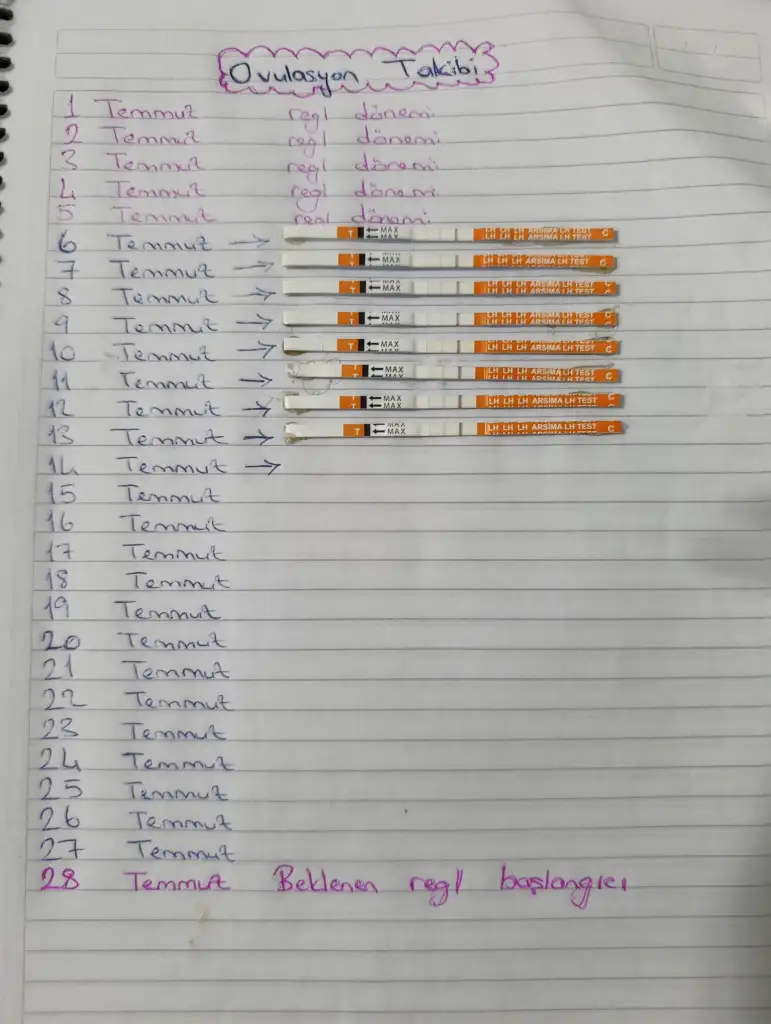 Ovulasyon Takibi
1 Temmuz regl dönemi
2 Temmuz regl dönemi
3 Temmuz regl dönemi
4 Temmuz regl dönemi
5 Temmuz regl dönemi
6 Temmuz → T ← MAX ← MAX LH LH LH ARSIMA LH TEST LH LH LH ARSIMA LH TEST C
7 Temmuz → T ← MAX LH LH LH ARSIMA LH TEST C
8 Temmuz → T ← MAX LH LH LH ARSIMA LH TEST C
9 Temmuz → T ← MAX LH LH LH ARSIMA LH TEST C
10 Temmuz → T ← MAX LH LH LH ARSIMA LH TEST C
11 Temmuz → T ← MAX LH LH LH ARSIMA LH TEST C
12 Temmuz → T ← MAX ← MAX LH LH LH ARSIMA LH TEST C
13 Temmuz → T ← MAX LH LH LH ARSIMA LH TEST C
14 Temmuz →
15 Temmuz
16 Temmuz
17 Temmuz
18 Temmuz
19 Temmuz
20 Temmuz
21 Temmuz
22 Temmuz
23 Temmuz
24 Temmuz
25 Temmuz
26 Temmuz
27 Temmuz
28 Temmuz Beklenen regl başlangıcı